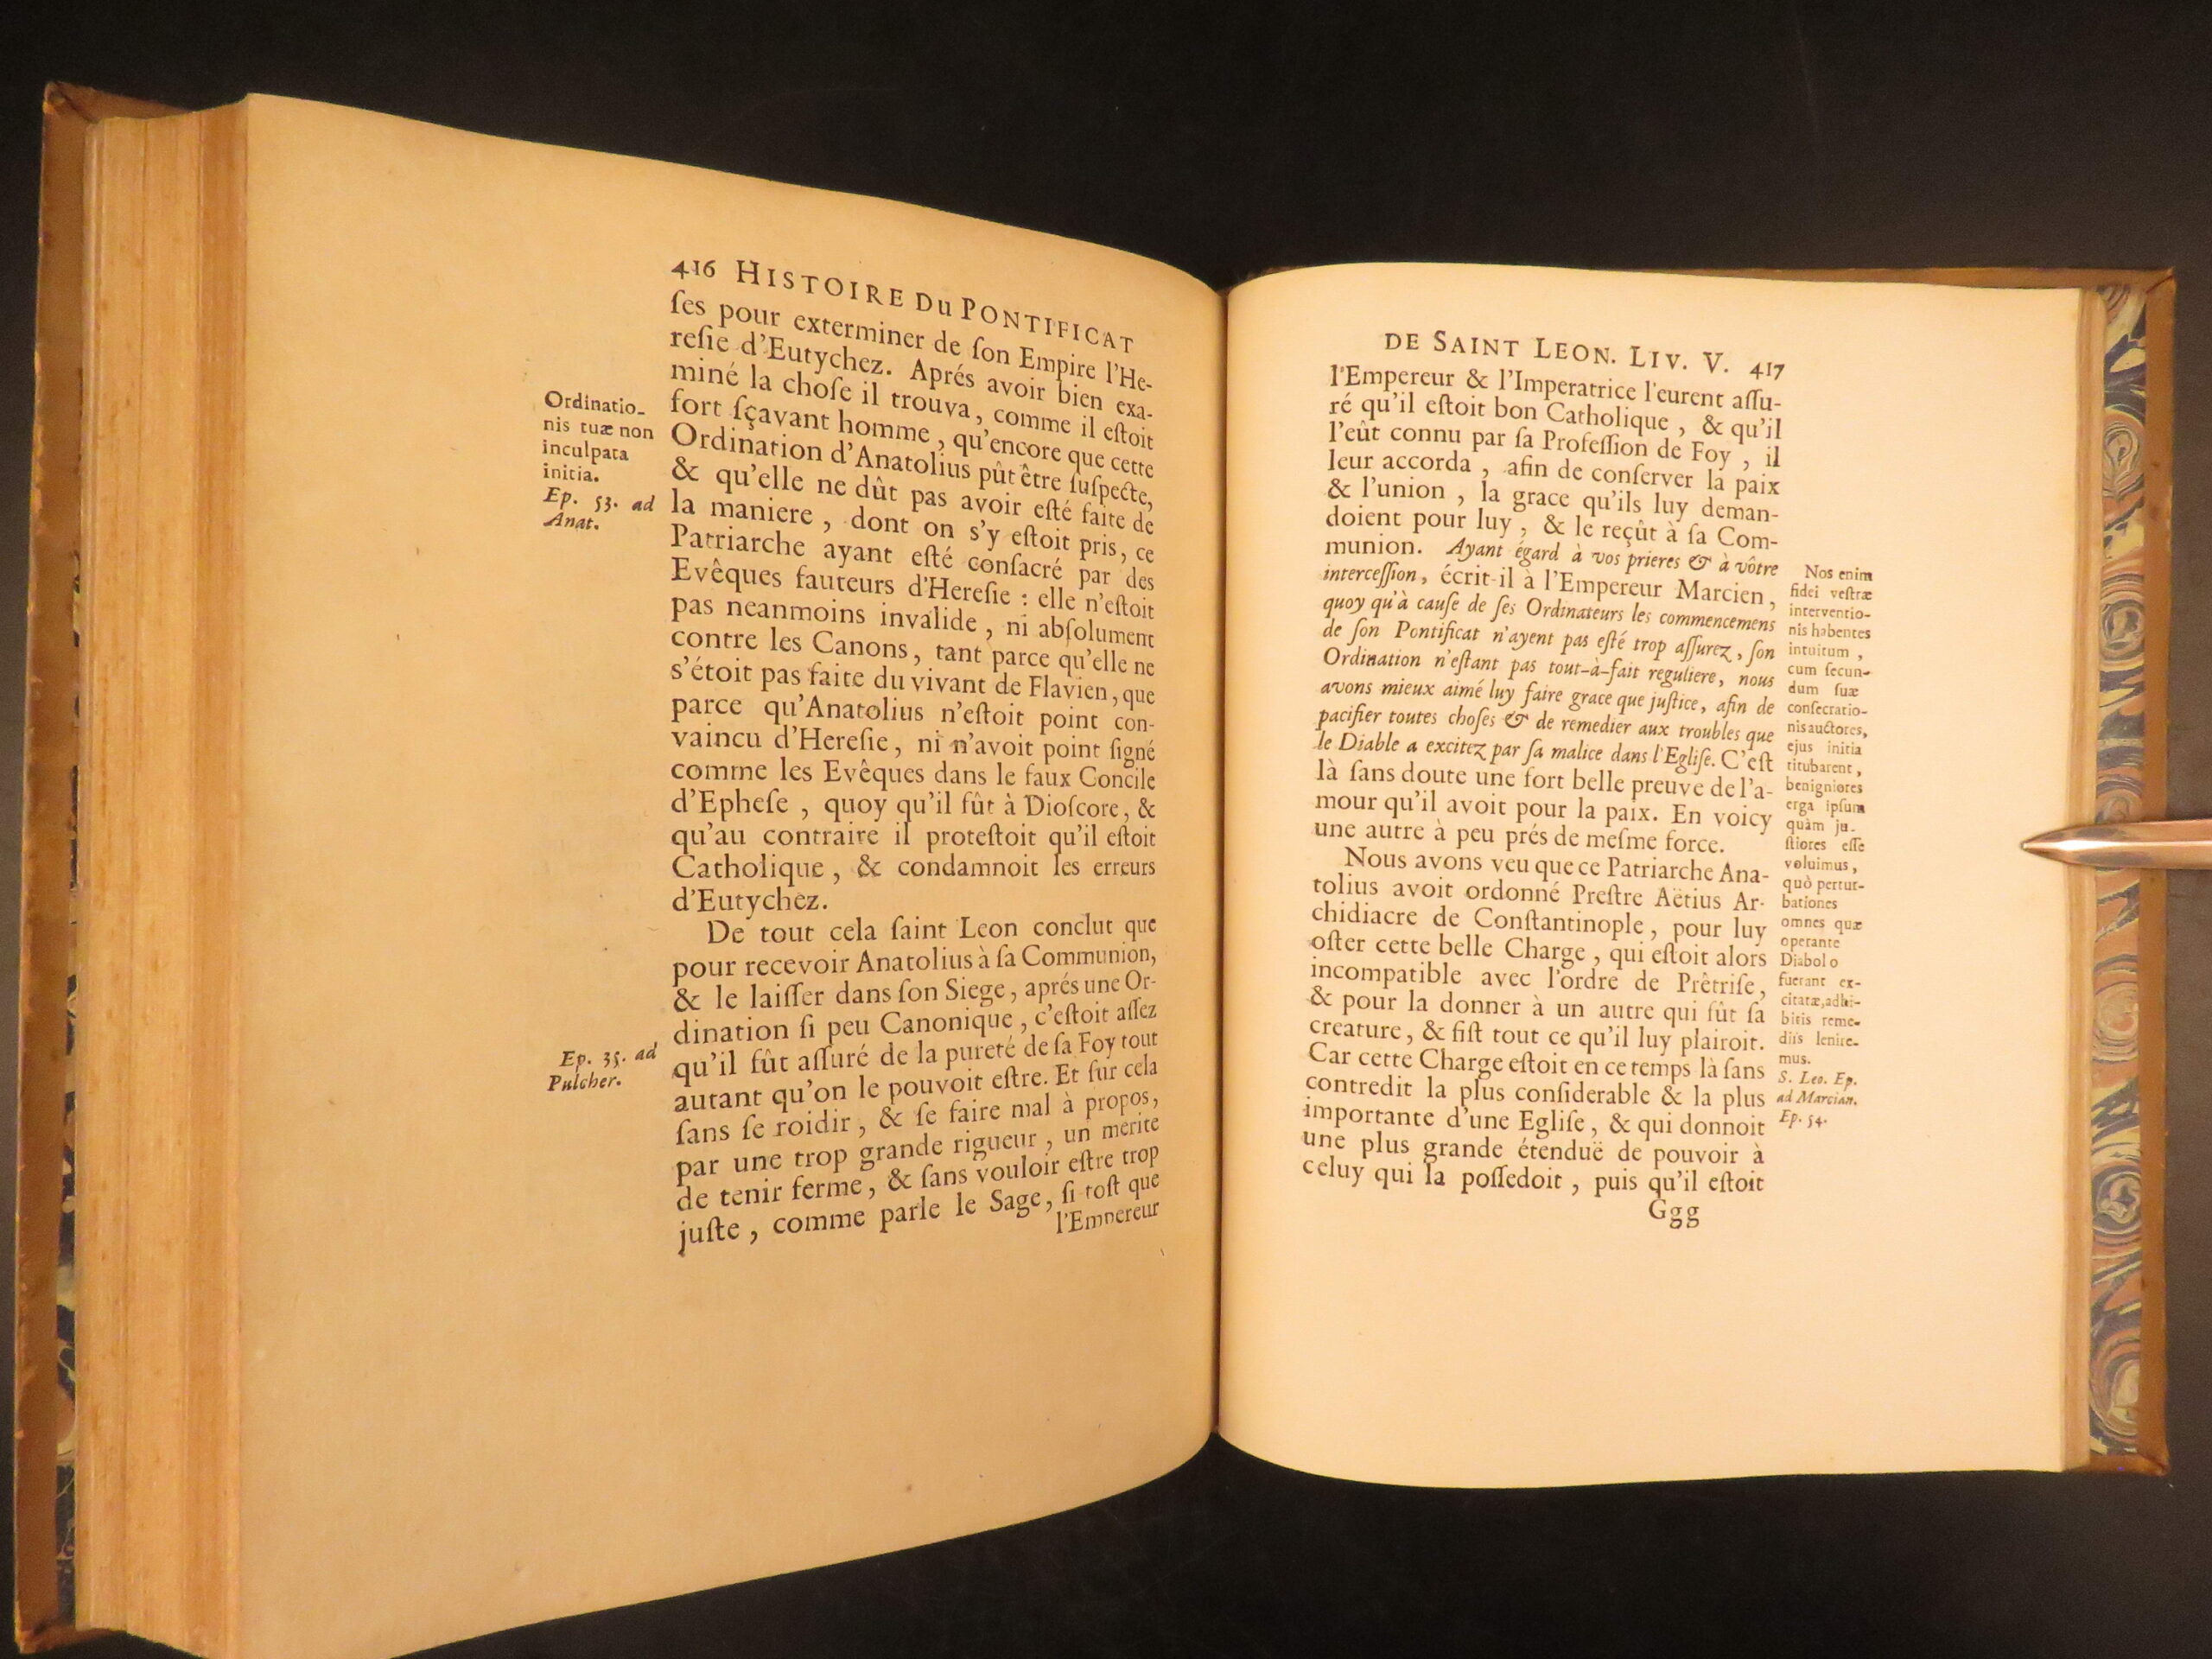 416 HISTOIRE DU PONTIFICAT
ſes pour exterminer de ſon Empire l'He-
reſie d'Eutychez. Aprés avoir bien exa-
miné la choſe il trouva, comme il eſtoit
fort ſçavant homme, qu'encore que cette
Ordination d'Anatolius pût être ſuſpecte,
& qu'elle ne dût pas avoir eſté faite de
la maniere, dont on s'y eſtoit pris, ce
Patriarche ayant eſté conſacré par des
Evêques fauteurs d'Hereſie : elle n'eſtoit
pas neanmoins invalide, ni abſolument
contre les Canons, tant parce qu'elle ne
s'étoit pas faite du vivant de Flavien, que
parce qu'Anatolius n'eſtoit point con-
vaincu d'Hereſie, ni n'avoit point ſigné
comme les Evêques dans le faux Concile
d'Epheſe, quoy qu'il fût à Dioſcore, &
qu'au contraire il proteſtoit qu'il eſtoit
Catholique, & condamnoit les erreurs
d'Eutychez.
De tout cela ſaint Leon conclut que
pour recevoir Anatolius à ſa Communion,
& le laiſſer dans ſon Siege, aprés une Or-
dination ſi peu Canonique, c'eſtoit aſſez
qu'il fût aſſuré de la pureté de ſa Foy tout
autant qu'on le pouvoit eſtre. Et ſur cela
ſans ſe roidir, & ſe faire mal à propos,
par une trop grande rigueur, un merite
de tenir ferme, & ſans vouloir eſtre trop
juſte, comme parle le Sage, ſi-toſt que
l'Empereur
Ordinatio-
nis tuæ non
inculpata
initia.
Ep. 53. ad
Anat.
Ep. 35. ad
Pulcher.
DE SAINT LEON. LIV. V. 417
l'Empereur & l'Imperatrice l'eurent aſſu-
ré qu'il eſtoit bon Catholique, & qu'il
l'eût connu par ſa Profeſſion de Foy, il
leur accorda, afin de conſerver la paix
& l'union, la grace qu'ils luy deman-
doient pour luy, & le reçût à ſa Com-
munion. Ayant égard à vos prieres & à vôtre
interceſſion, écrit-il à l'Empereur Marcien,
quoy qu'à cauſe de ſes Ordinateurs les commencemens
de ſon Pontificat n'ayent pas eſté trop aſſurez, ſon
Ordination n'eſtant pas tout-à-fait reguliere, nous
avons mieux aimé luy faire grace que juſtice, afin de
pacifier toutes choſes & de remedier aux troubles que
le Diable a excitez par ſa malice dans l'Egliſe. C'eſt
là ſans doute une fort belle preuve de l'a-
mour qu'il avoit pour la paix. En voicy
une autre à peu prés de meſme force.
Nous avons veu que ce Patriarche Ana-
tolius avoit ordonné Preſtre Aëtius Ar-
chidiacre de Conſtantinople, pour luy
oſter cette belle Charge, qui eſtoit alors
incompatible avec l'ordre de Prêtriſe,
& pour la donner à un autre qui fût ſa
creature, & fiſt tout ce qu'il luy plairoit.
Car cette Charge eſtoit en ce temps là ſans
contredit la plus conſiderable & la plus
importante d'une Egliſe, & qui donnoit
une plus grande étenduë de pouvoir à
celuy qui la poſſedoit, puis qu'il eſtoit
Ggg
Nos enim
fidei veſtræ
interventio-
nis habentes
intuitum,
cum ſecun-
dum ſuæ
conſecratio-
nis auctores,
ejus initia
titubarent,
benigniores
erga ipſum
quàm ju-
ſtiores eſſe
voluimus,
quò pertur-
bationes
omnes quæ
operante
Diabolo
fuerant ex-
citatæ, adhi-
bitis reme-
diis lenire-
mus.
S. Leo. Ep.
ad Marcian.
Ep. 54.